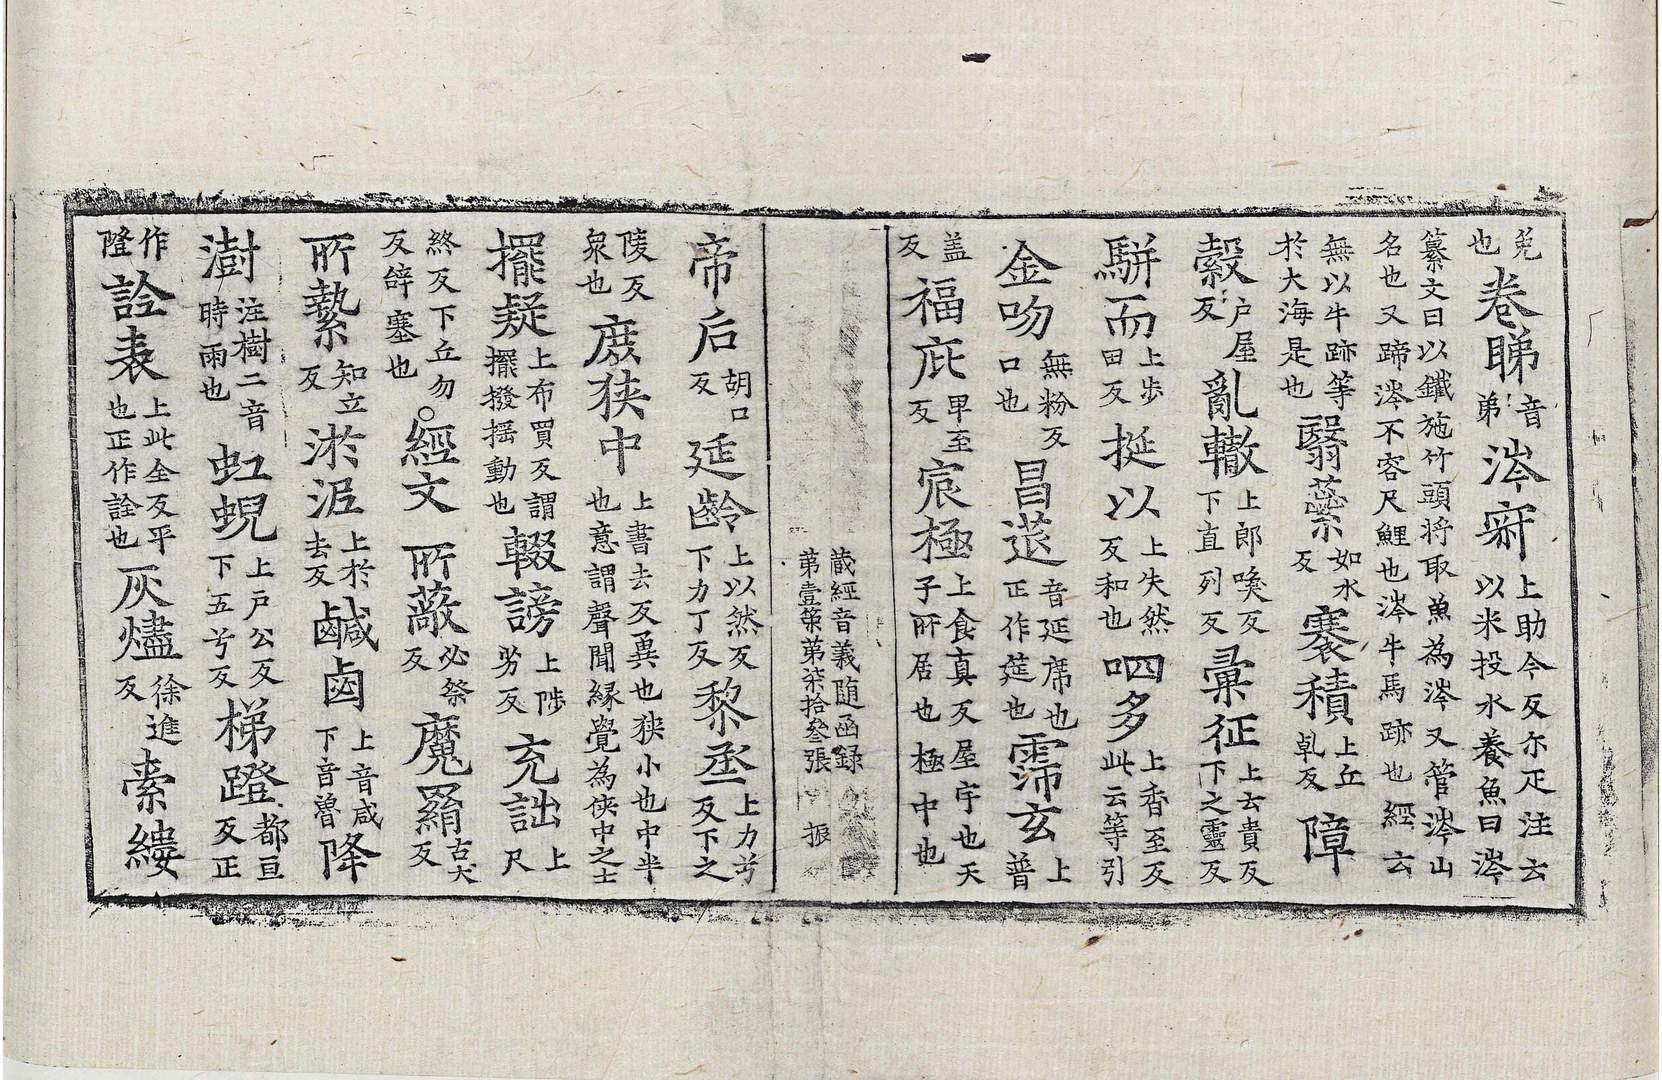 兊也卷睇音弟涔䆟上助今反尒疋注云以米投水養魚曰涔
纂文曰以鐵施竹頭将取魚為涔又管涔山名也又蹄涔不容尺鯉也涔牛馬跡也經云
無以牛跡等於大海是也翳蘂如水反褰積上丘乹反障
縠户屋反亂轍上郎喚反下直列反彚征上云貴反下之靈反
駢而上步田反挻以上失然反和也呬多上香至反此云等引
金吻無粉反口也昌莚音延席也正作筵也霈玄上普
盖反福庇畀至反宸極上食真反屋宇也天子所居也極中也
藏經音義随函録
第壹筞第柒拾叄張 振
帝后胡口反延齡上以然反下力丁反黎丞上力兮反下之
陵反衆也庶狹中上書去反異也狹小也中半也意謂聲聞縁覺為狹中之士
擺疑上布買反謂擺撥揺動也輟謗上陟劣反充詘上尺
終反下丘勿反辭塞也○經文所蔽必祭反魔羂古犬反
所縶知立反淤泥上於去反鹹鹵上音咸下音魯降
澍注樹二音時雨也虹蜺上戸公反下五兮反梯蹬都亘反正
作隥詮表上此全反平也正作詮也灰燼徐進反索縷